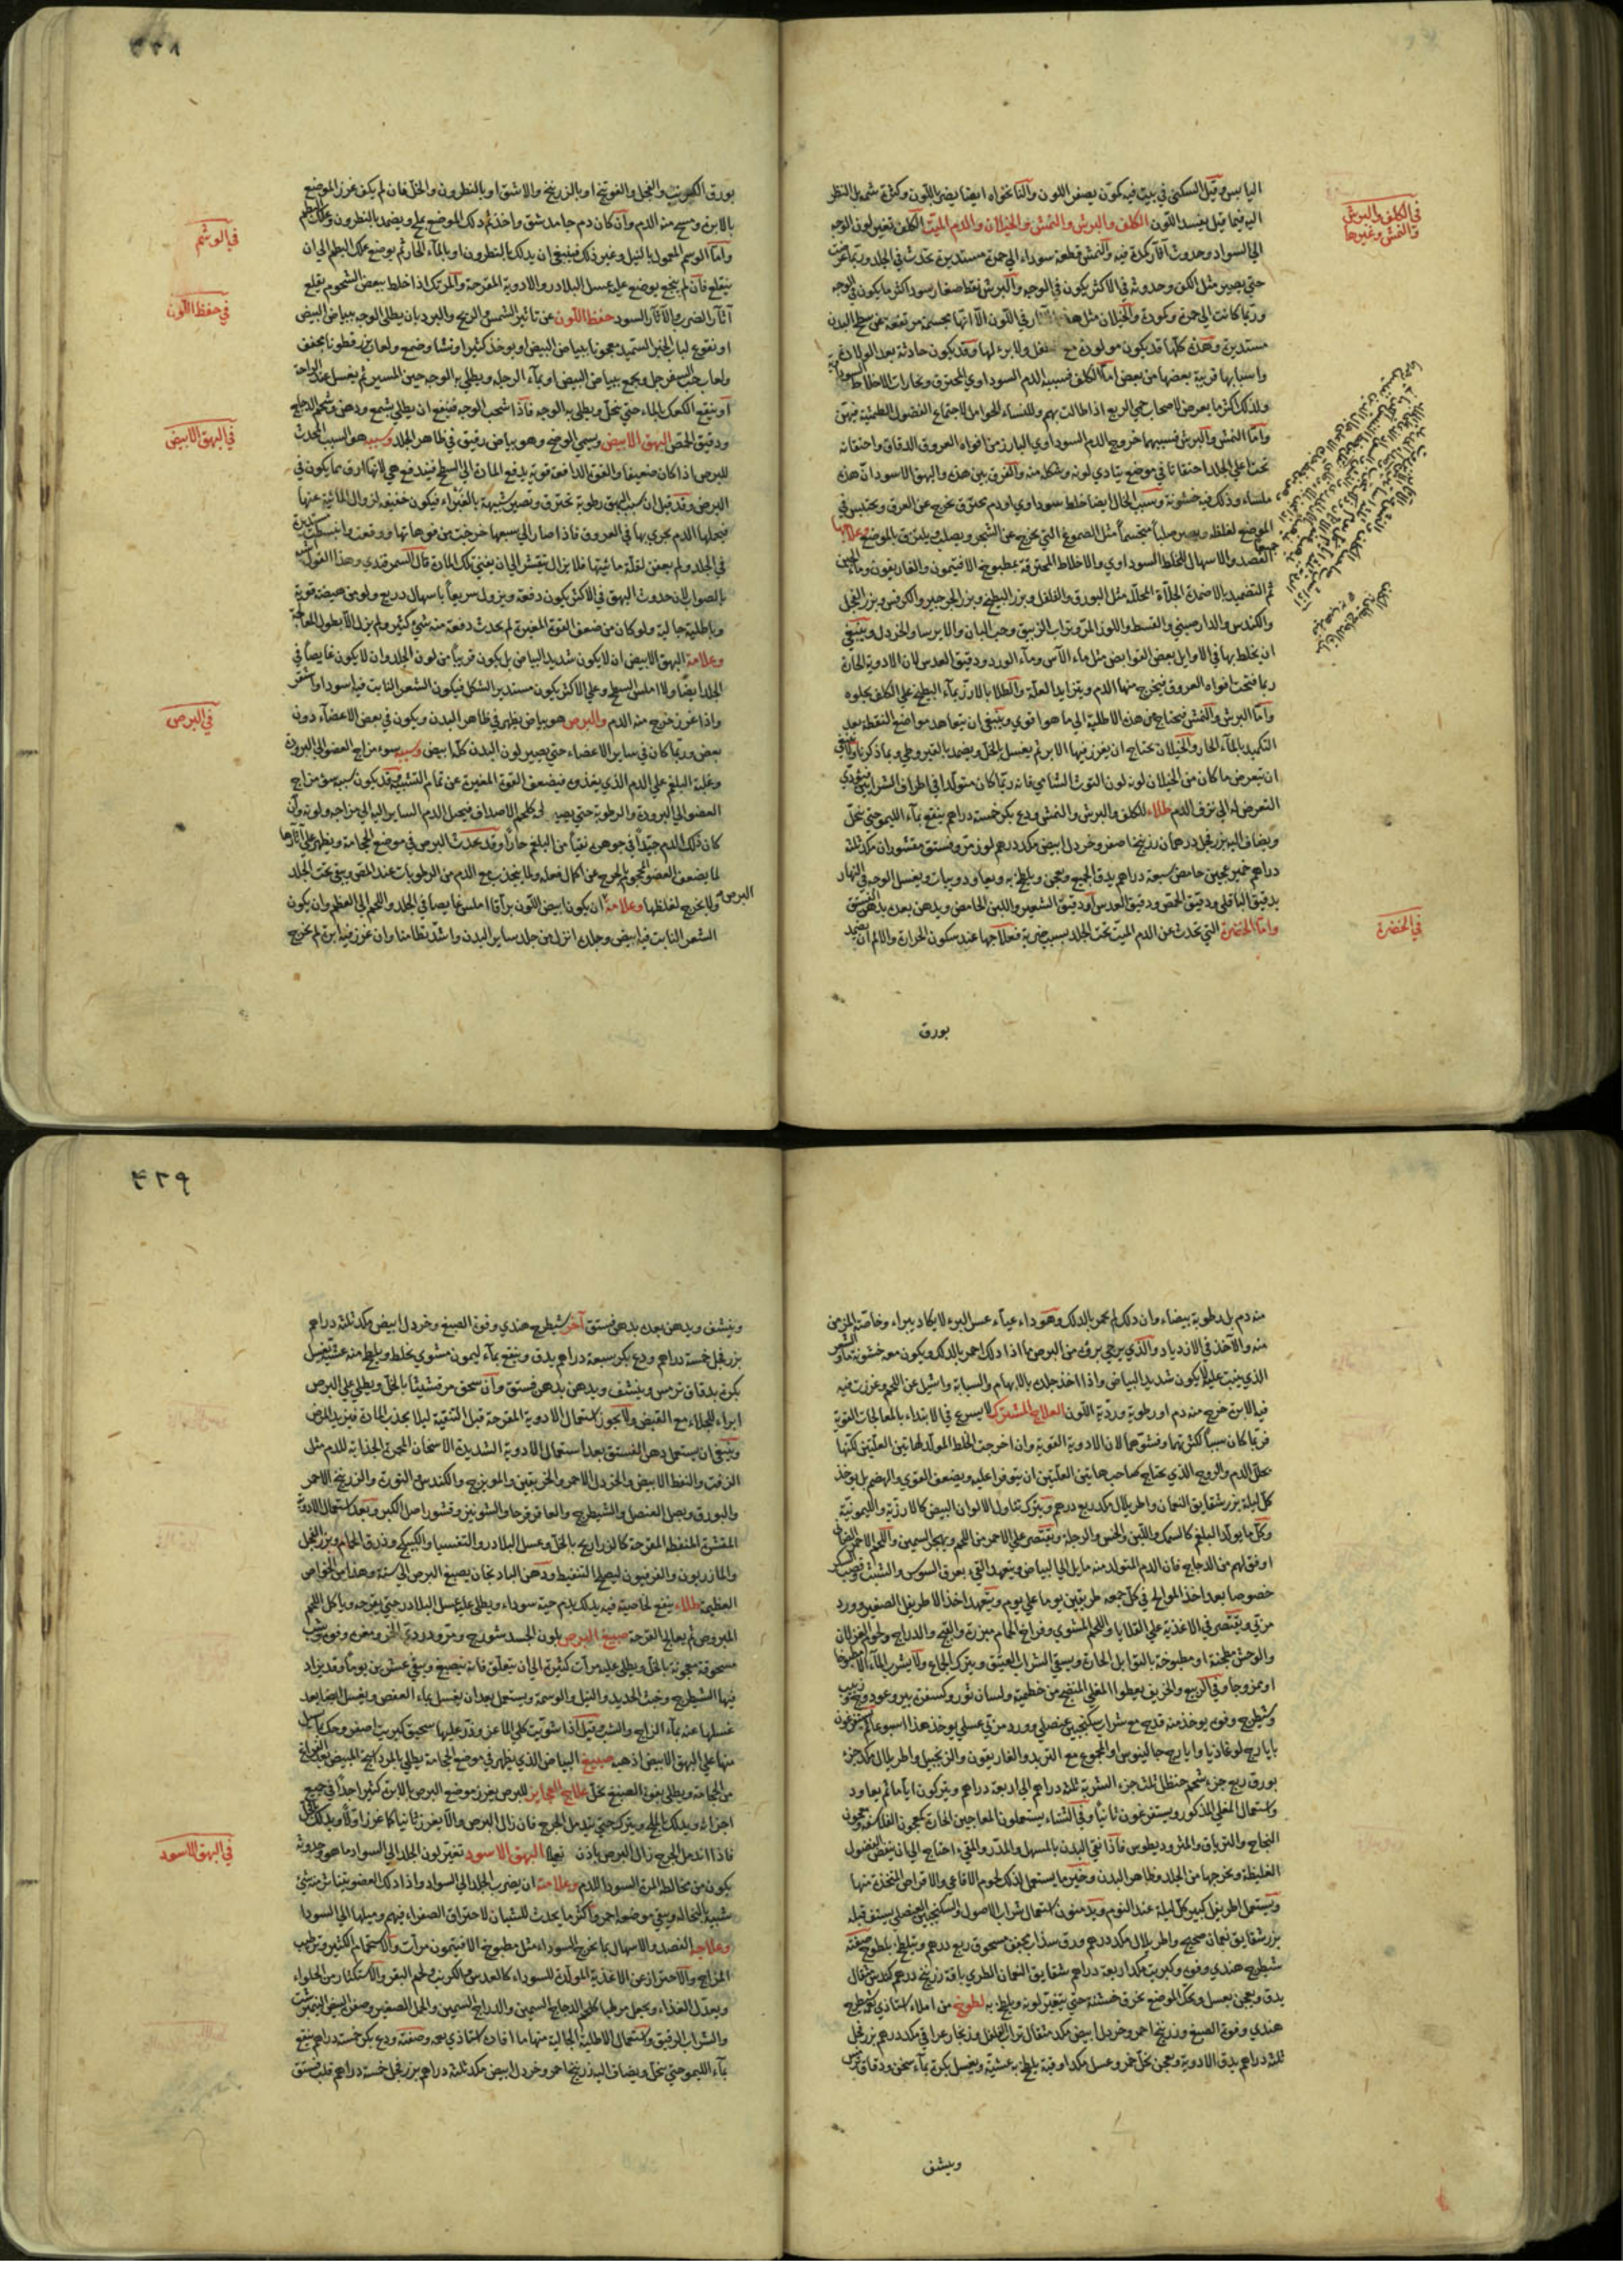 في الكلف والبرش
والنمش وغيرها
اليابس وقيل السكنى في بيت فيه كمون يصفر اللون والنانخواه ايضا يضر باللون وكثرة شمه بل النظر
اليه فيما قيل يفسد اللون الكلف والبرش والنمش والخيلان والدم الميت الكلف تغير لون الوجه
الى السواد وحدوث آثار كمدة فيه والنمش قطعة سوداء الى حمرة مستديرة تحدث في الجلد وربما عرضت
حتى يصير مثل الكف وحدوثه في الاكثر يكون في الوجه والبرش نقط صغار سود اكثر ما يكون في الوجه
وربما كانت الى حمرة وكمودة والخيلان مثل هذه في اللون الا انها مجسمة مرتفعة عن سطح البدن
مستديرة وهذه كلها قد يكون مولودة مع ولا برء لها وقد يكون حادثة بعد الولادة
واسبابها قريبة بعضها من بعض اما الكلف فسببه الدم السوداوي المحترق وبخارات الاخلاط السوداوية
ولذلك اكثر ما يعرض لاصحاب حمى الربع اذا طالت بهم وللنساء الحوامل لاجتماع الفضول الطمثية فيهن
واما النمش والبرش فسببهما خروج الدم السوداوي البارز من افواه العروق الدقاق واحتقانه
تحت على الجلد احتقانا في موضع يتادي لونه وشكله منه والفرق بين هذه والبهق الاسود ان هذه
ملساء وذلك فيه خشونة وسبب الخال ايضا خلط سوداوي او دم محترق يخرج عن العرق ويحتبس في
الموضع لغلظه ويصير صلبا متجسما مثل الصموغ التي تخرج عن الشجر ويصلب ويلتزق بالموضع وعلاجها
الفصد والاسهال للخلط السوداوي والاخلاط المحترقة بمطبوخ الافتيمون والغاريقون وماء الجبن
ثم التضميد بالاضمدة الجلاءة المحللة مثل البورق والفلفل وبزر البطيخ وبزر الجرجير والكرنب وبزر الفجل
والكندس والدارصيني والقسط واللوز المر وتراب الزيبق وحب البان والايرسا والخردل وينبغي
ان يخلط بها في الاوايل بعض القوابض مثل ماء الآس وماء الورد ودقيق العدس لان الادوية الحارة
ربما فتحت افواه العروق فيخرج منها الدم ويتزايد العلة والطلا بالارز بماء البطيخ على الكلف يجلوه
واما البرش والنمش فيحتاج من هذه الاطلية الى ما هو اقوى وينبغي ان يتعاهد مواضع النقط بعد
التكميد بالماء الحار والخيلان يحتاج ان يغرز فيها الابر ثم يغسل بالخل ويضمد بالقيروطي وبما ذكرنا ولا ينبغي
ان يتعرض ما كان من الخيلان لونه لون التوت الشامي فانه ربما كان متولدا في اطراف الشرايين فيؤدي
التعرض له الى نزف الدم طلاء للكلف والبرش والنمش ودع بكر خمسة دراهم ينقع بماء الليمو حتى ينحل
ويضاف اليه بزر فجل درهمان زرنيخ اصفر وخردل ابيض مكد درهم لوز مر وفستق مقشوران مكد ثلثة
دراهم خمير عجين حامض سبعة دراهم يدق الجميع ويعجن ويلطخ به ويعاود وبيات ويغسل الوجه في النهار
بدقيق الباقلي ودقيق الحمص ودقيق العدس او دقيق الشعير واللبن الحامض ويدهن بعد بدهن الفستق
واما الخضرة التي تحدث عن الدم الميت تحت الجلد بسبب ضربة فعلاجها عند سكون الحرارة والالم ان يضمد
في الخضرة
بورق
٤٢٨
بورق الكبريت والفجل والفوتنج او بالزرنيخ والاشق او بالنطرون والخل فان لم يكف غرز الموضع
بالابرة ومسح منه الدم وان كان دم جامد شق واخذ ثم دلك الموضع بملح ويضمد بالنطرون وعلك البطم
واما الوسم المعمول بالنيل وغير ذلك فينبغي ان يدلك بالنطرون او بالماء الحار ثم يوضع علك البطم الى ان
ينقلع فان لم ينجع يوضع عليه عسل البلادر والادوية المقرحة والمرتك اذا خلط ببعض الشحوم يقلع
آثار الضرب والآثار السود حفظ اللون عن تاثير الشمس والريح والبرد بان يطلى الوجه ببياض البيض
او نقوع لباب الخبز السميد معجونا ببياض البيض او يوخذ كثيرا ونشا وصمغ ولعاب بزرقطونا يجفف
ولعاب حب السفرجل ويجمع ببياض البيض او بماء الرجلة ويطلى به الوجه حين المسير ثم يغسل عند الراحة
او ينقع الكعك بالماء حتى ينحل ويطلى به الوجه فاذا شحب الوجه فينبغي ان يطلى بشمع ودهن وشحم الدجاج
ودقيق الحمص البهق الابيض ويسمى الوضح وهو بياض رقيق في ظاهر الجلد وسببه هو السبب المحدث
للبرص اذا كان ضعيفا والقوة الدافعة قوية يدفع المادة الى السطح فيندفع هي لانها ارق مما يكون في
البرص وقد قيل ان سبب البهق رطوبة تحترق وتصير شبيهة بالغبراء فيكون خفيفة لزوال المائية عنها
فيحملها الدم يجري بها في العروق فاذا صار الى سبعها خرجت من فوهاتها ووقعت وانبسطت مستديرة
في الجلد ولم يعفن لقلة مائيتها فلا يزال يتقشر الى ان يفنى تلك المادة قال السمرقندي وهذا القول اشبه
بالصواب لان حدوث البهق في الاكثر يكون دفعة ويزول سريعا باسهال ذريع ولو من هيضة قوية
وباطلية جالية ولو كان من ضعف القوة المغيرة لم يحدث دفعة منه شيء كثير ولم يزل الا بطول المعالجة
وعلامة البهق الابيض ان لا يكون شديد البياض بل يكون قريبا من لون الجلد وان لا يكون غايصا في
الجلد ايضا ولا املس السطح وعلى الاكثر يكون مستدير الشكل فيكون الشعر النابت فيه اسود او اشقر
واذا غرز خرج منه الدم والبرص هو بياض يظهر في ظاهر البدن ويكون في بعض الاعضاء دون
بعض وربما كان في ساير الاعضاء حتى يصير لون البدن كله ابيض وسببه سوء مزاج العضو الى البرودة
وغلبة البلغم على الدم الذي يغذوه فيضعف القوة المغيرة عن تمام التشبيه وقد يكون سببه سوء مزاج
العضو الى البرودة والرطوبة حتى يصير لحمه كلحم الاصداف فيحيل الدم الساير اليه الى مزاجه ولونه وان
كان ذلك الدم جيدا في جوهره نقيا من البلغم حارا وقد يحدث البرص في موضع الحجامة ويظهر على آثارها
لما يضعف العضو المحجوم بالجرح عن اكمال فعله ولما ينجذب مع الدم من الرطوبات عند المص ويبقى تحت الجلد
ولا يخرج لغلظها وعلامة البرص ان يكون ابيض اللون براقا املس غايصا في الجلد واللحم الى العظم وان يكون
الشعر النابت فيه ابيض وجلده انزل من جلد ساير البدن واشد تطامنا وان غرز فيه ابرة لم يخرج
في الوشم
في حفظ اللون
في البهق الابيض
في البرص
منه دم بل رطوبة بيضاء وان دلك لم يحمر بالدلك وهو داء عياء عسر البرء لا يكاد يبراء وخاصة المزمن
منه والآخذ في الازدياد والذي يرجى برؤه من البرص ما اذا دلك احمر بالدلك ويكون معه خشونة ما والشعر
الذي ينبت عليه لا يكون شديد البياض واذا اخذ جلده بالابهام والسبابة واشيل عن اللحم وغرزت فيه
فيه الابرة خرج منه دم او رطوبة وردية اللون العلاج المشترك لا يسرع في الابتداء بالمعالجات القوية
فربما كان سببا لكثرتهما وفشوهما لان الادوية القوية وان اخرجت الخلط المولد لهاتين العلتين لكنها
تحلل الدم والروح الذي يحتاج صاحب هاتين العلتين ان يتوفرا عليه ويضعف القوى والهضم بل يوخذ
كل ليلة بزر شقايق النعمان واطريلال مكد ربع درهم ويترك تناول الالوان البيض كالارزية والليمونية
وكل ما يولد البلغم كالسمك واللبن والخس والرجلة ويقتصر على الاحمر من اللحم ويهجر السمين واللحم الاحمر الضان
اوفق لهم من الدجاج فان الدم المتولد منه مايل الى البياض ويتعهد القيء بعرق السوس والشبت وقضب السكر
خصوصا بعد اخذ الموالح في كل جمعة طريقين يوما على يوم ويتعهد اخذ الاطريفل الصغير وورد
مربى ويقتصر في الاغذية على القلايا واللحم المشوي وفراخ الحمام مبزرة والقبج والدراج ولحوم الغزلان
والوحش مطجنة او مطبوخة بالتوابل الحارة ويسقى الشراب العتيق ويترك الجماع ولا يشرب الماء الا مطبوخا
او ممزوجا وفي الربيع والخريف يعطوا المغلي المنضج من خطمية ولسان ثور وكسفرة بير وعود سوس وزبيب
وشيطرج وفوه يوخذ منه قدح مع شراب سكنجبين عنصلي وورد مربى عسلي يوخذ هذا اسبوعا ثم يستفرغون
بايارج لوغاذيا وايارج جالينوس او المجموع مع التربد والغاريقون والزنجبيل واطريلال مكد جزء
بورق ربع جزء شحم حنظل ثلث جزء الشربة ثلثة دراهم الى اربعة دراهم ويتركون اياما ثم يعاود
واستعمال المغلي المذكور ويستفرغون ثانيا وفي الشتاء يستعملون المعاجين الحارة كمعجون الفلاسفة ومعجون
النجاح والترياق والمثروديطوس فاذا نقي البدن بالمسهل والمدر والمقيء احتاج الى ان ينفض الفضول
الغليظة ويخرجها من الجلد وظاهر البدن وخير ما يستعمل لذلك لحوم الافاعي والاقراص المتخذة منها
ويستعمل اطريفل كبير كل ليلة عند النوم ويدمنون استعمال شراب الاصول والسكنجبين العنصلي يستف قبله
بزر شقايق نعمان صحيح واطريلال مكد درهم ورق سذاب مجفف مسحوق ربع درهم ويتلطخ بلطوخ صفته
شيطرج هندي وفوه وكبريت مكد اربعة دراهم شقايق النعمان الطري باقة زرنيخ درهم كندس مثقال
يدق ويعجن بعسل ويحك الموضع بخرقة خشنة حتى يتغير لونه ويلطخ به لطوخ من املاء استاذي شيطرج
هندي وفوه الصبغ وزرنيخ احمر وخردل ابيض مكد مثقال تراب الفلفل وزنجار عراقي مكد درهم بزر فجل
ثلثة دراهم يدق الادوية ويعجن بخل خمر وعسل مكد اوقية يلطخ به عشية ويغسل بكرة بماء سخن ودقاق ترمس
وينشف
٤٢٩
وينشف ويدهن بعده بدهن فستق آخر شيطرج هندي وفوة الصبغ وخردل ابيض مكد ثلثة دراهم
بزر فجل خمسة دراهم ودع بكر سبعة دراهم يدق وينقع بماء ليمون مشوي يخلط ويلطخ منه عشية يغسل
بكرة بدقاق ترمس وينشف ويدهن بدهن فستق وان سحق مرقشيثا بالخل ويطلى على البرص
ابراه للجلاء مع القبض ولا يجوز استعمال الادوية المقرحة قبل التنقية ليلا يجذب المادة فيزيد المرض
وينبغي ان يستعمل دهن الفستق بعد استعمال الادوية الشديدة الاسخان المحمرة الجذابة للدم مثل
الزفت والنفط الابيض والخردل الاحمر والخربقين والمويزج والكندس والنورة والزرنيخ الاحمر
والبورق وبصل العنصل والشيطرج والعاقرقرحا والشونيز وقشور اصل الكبر وبعد استعمال الادوية
المقشرة المنفطة المقرحة كالذراريح بالخل وعسل البلادر والتفسيا والكبيكج وذرق الحمام وبزر الفجل
والمازريون والفرفيون ليصلح التنفيط ودهن الباذنجان يصبغ البرص الى سنة وهذا من الخواص
العظيمة طلاء ينفع لخاصية فيه يدلك بدم حية سوداء ويطلى عليه عسل البلادر حتى يقرحه وياكل اللحم
المبروص ثم يعالج القرحة صبيغ البرص بلون الجسد شونيز ومر ودردي الخمر ومغره وفوه وشب
مسحوقة معجونة بالخل ويطلى عليه مرات كثيرة الى ان يتعلق فانه ينصبغ ويبقى عشرين يوما وقد يزاد
فيها الشيطرج وخبث الحديد والنيل والوسمة ويستعمل بعد ان يغسل بماء العفص ويغسل ايضا بعد
غسلها عنه بماء الزاج والشب وقيل اذا شويت كلى الماعز وذر عليها سحيق كبريت اصفر وحك بما يسيل
منها على البهق الابيض اذهبه صبيغ البياض الذي يظهر في موضع الحجامة يطلى بالمرداسنج المبيض بعد الفراغ
من الحجامة ويطلى بفوة الصبغ بخل علاج العجايز للبرص يغرز موضع البرص بالابرة كثيرا جدا في جميع
اجزائه ويدلك بالملح ويترك حتى يندمل الجرح فان زال البرص والا يغرز ثانيا كما غرز اولا ويدلك بالملح
فاذا اندمل الجرح زال البرص باذن تعالى البهق الاسود تغير لون الجلد الى السواد ما هو وحدوثه
يكون من مخالطة المرة السودا للدم وعلامته ان يضرب الجلد الى السواد واذا دلك العضو يتناثر منه شيء
شبيه بالنخالة ويبقى موضعه احمر واكثر ما يحدث للشبان لاحتراق الصفراء فيهم وميلها الى السودا
وعلاجه الفصد والاسهال بما يخرج السوداء مثل مطبوخ الافتيمون مرات والاستحمام الكثير وترطيب
المزاج والاحتراز عن الاغذية المولدة للسوداء كالعدس والكرنب ولحم البقر والاستكثار من الحلواء
ويعدل الغذاء ويجعل مرطبا كلحم الدجاج السمين والدراج السمين والحمل الصغير وصفرة البيض النيمبرشت
والشراب الرقيق واستعمال الاطلية الجالية منها ما افاده استاذي وصفته ودع بكر خمسة دراهم ينقع
بماء الليمو حتى ينحل ويضاف اليه زرنيخ احمر وخردل ابيض مكد ثلثة دراهم بزر فجل خمسة دراهم قلب فستق
في البهق الاسود